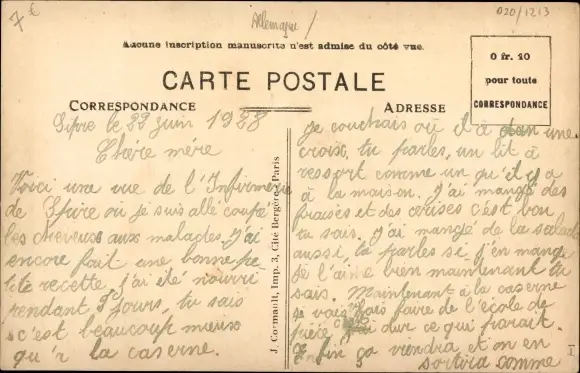 7 €
Allemagne /
020/1213
Aucune inscription manuscrite n'est admise du côté vue.
0 fr. 10
pour toute
CORRESPONDANCE
CARTE POSTALE
CORRESPONDANCE
ADRESSE
le 22 juin 1928
Chère mère
Voici une vue de l'Infirmerie
de où je suis allé coupé
les cheveux aux malades. j'ai
encore fait une bonne pe
tite recette, j'ai été nourri
pendant jours, tu sais
c'est beaucoup mieux
qu'a la caserne.
J. Cormault, Imp. 3, Cité Bergère, Paris
je couchais où il a une
croix, tu parles, un lit à
ressort comme un qu'il y a
à la maison. j'ai mangé des
fraises et des cerises c'est bon
tu sais. j'ai mangé de la salade
aussi, tu parles si j'en mange
je l'aime bien maintenant tu
sais. Maintenant à la caserne
je vais faire de l'école de
pièce dur ce qui parait.
Enfin ça viendra et on en
sortira comme